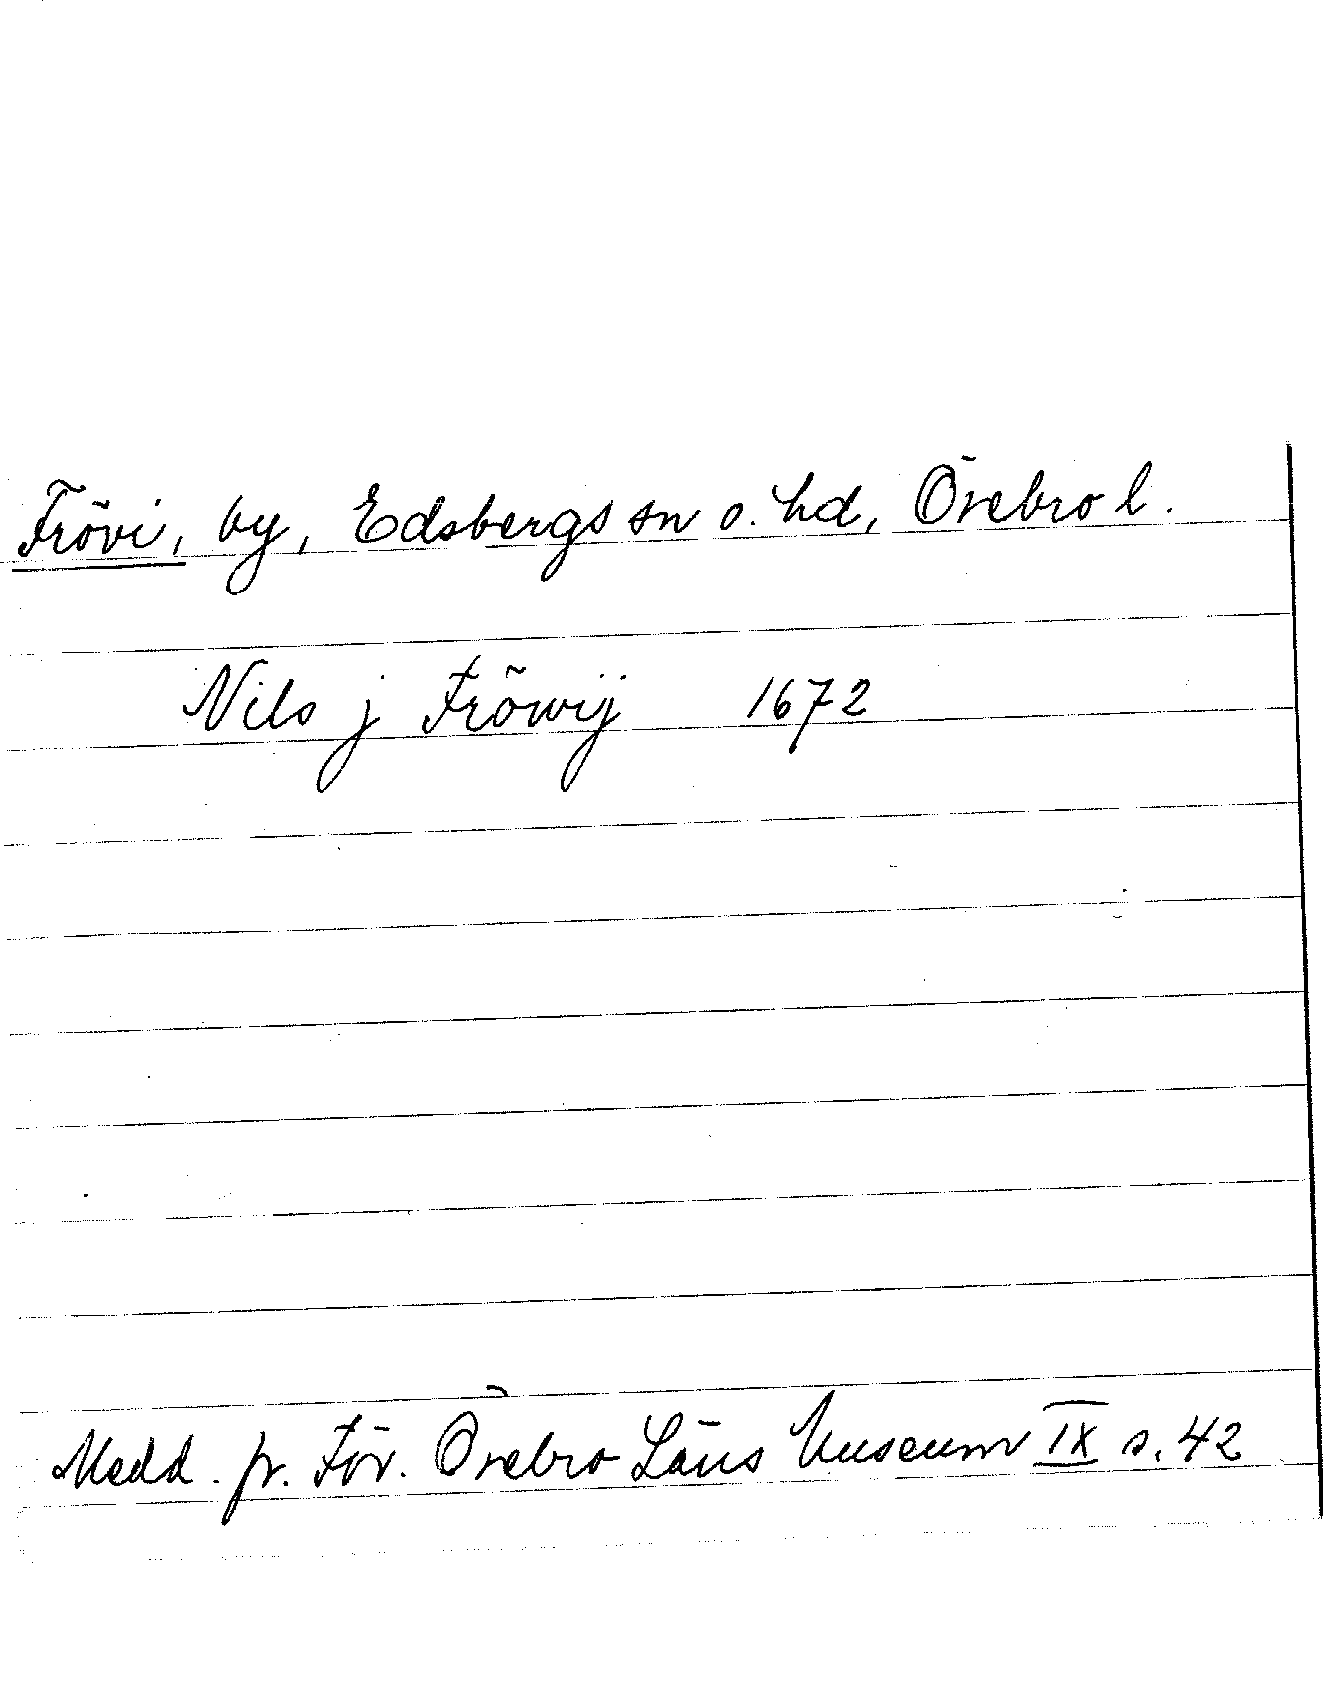 Frövi, by, Edsbergs sn o. hd, Örebro l.
Nils j Fröwij 1672
Medd. fr. För. Örebro Läns Museum IX s. 42